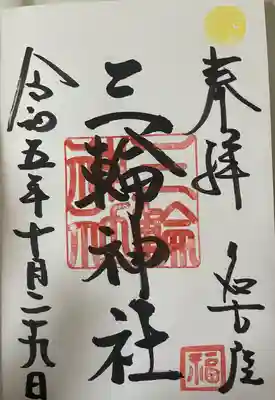 奉拝
名古屋
福
三輪神社
三輪神社
令和五年十月二十九日